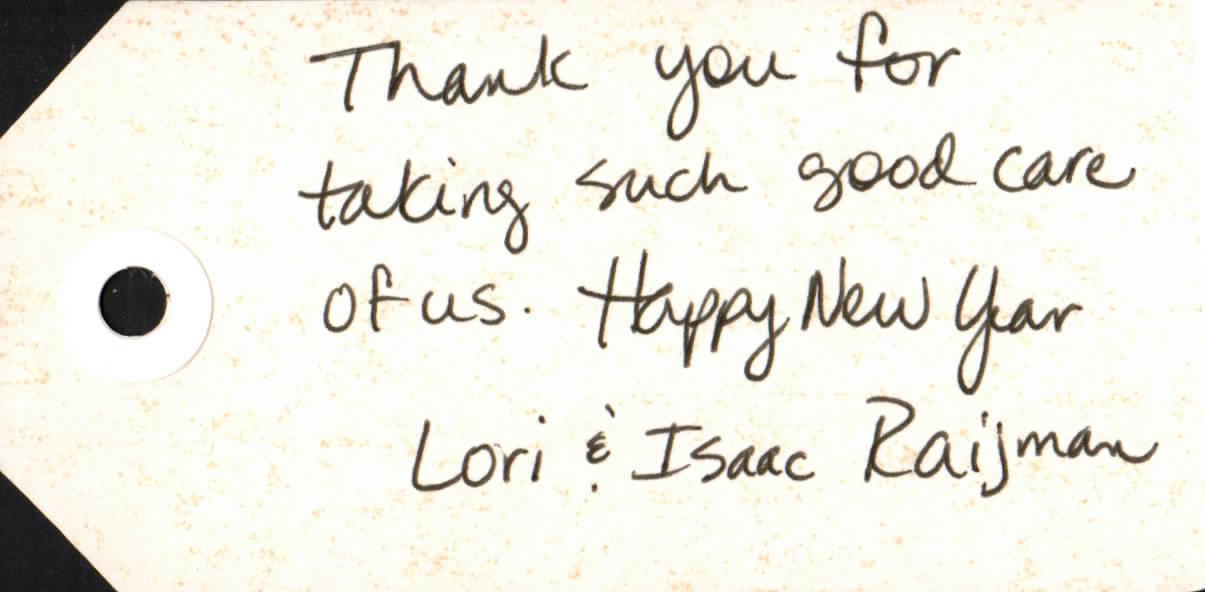 Thank you for
taking such good care
of us. Happy New Year
Lori & Isaac Raijman